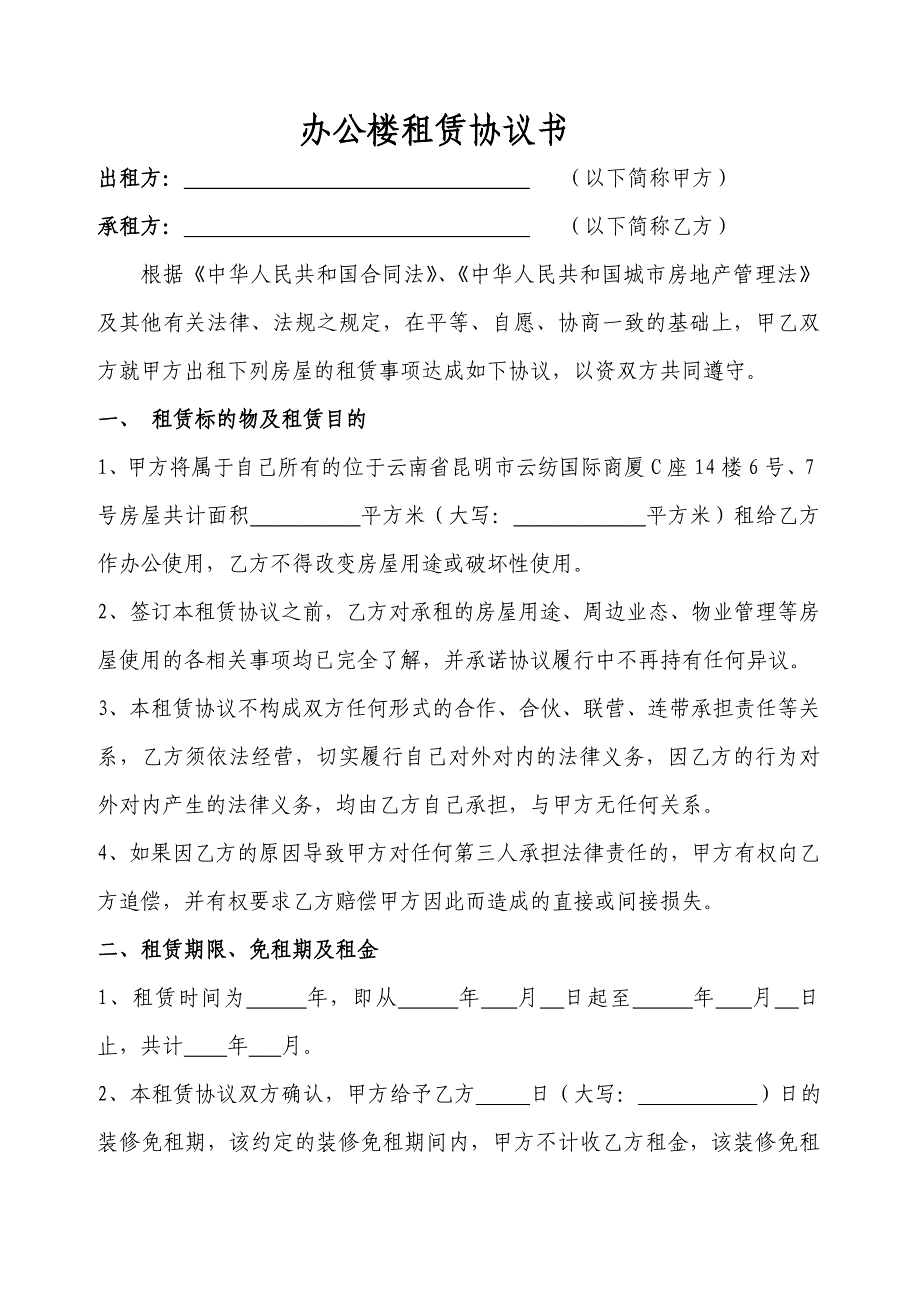 办公楼租赁协议书
出租方：________________________ （以下简称甲方）
承租方：________________________ （以下简称乙方）
根据《中华人民共和国合同法》、《中华人民共和国城市房地产管理法》
及其他有关法律、法规之规定，在平等、自愿、协商一致的基础上，甲乙双
方就甲方出租下列房屋的租赁事项达成如下协议，以资双方共同遵守。
一、 租赁标的物及租赁目的
1、甲方将属于自己所有的位于云南省昆明市云纺国际商厦 C 座 14 楼 6 号、7
号房屋共计面积__________平方米（大写：____________平方米）租给乙方
作办公使用，乙方不得改变房屋用途或破坏性使用。
2、签订本租赁协议之前，乙方对承租的房屋用途、周边业态、物业管理等房
屋使用的各相关事项均已完全了解，并承诺协议履行中不再持有任何异议。
3、本租赁协议不构成双方任何形式的合作、合伙、联营、连带承担责任等关
系，乙方须依法经营，切实履行自己对外对内的法律义务，因乙方的行为对
外对内产生的法律义务，均由乙方自己承担，与甲方无任何关系。
4、如果因乙方的原因导致甲方对任何第三人承担法律责任的，甲方有权向乙
方追偿，并有权要求乙方赔偿甲方因此而造成的直接或间接损失。
二、租赁期限、免租期及租金
1、租赁时间为_____年，即从_____年___月__日起至_____年___月__日
止，共计____年___月。
2、本租赁协议双方确认，甲方给予乙方_____日（大写：___________）日的
装修免租期，该约定的装修免租期间内，甲方不计收乙方租金，该装修免租